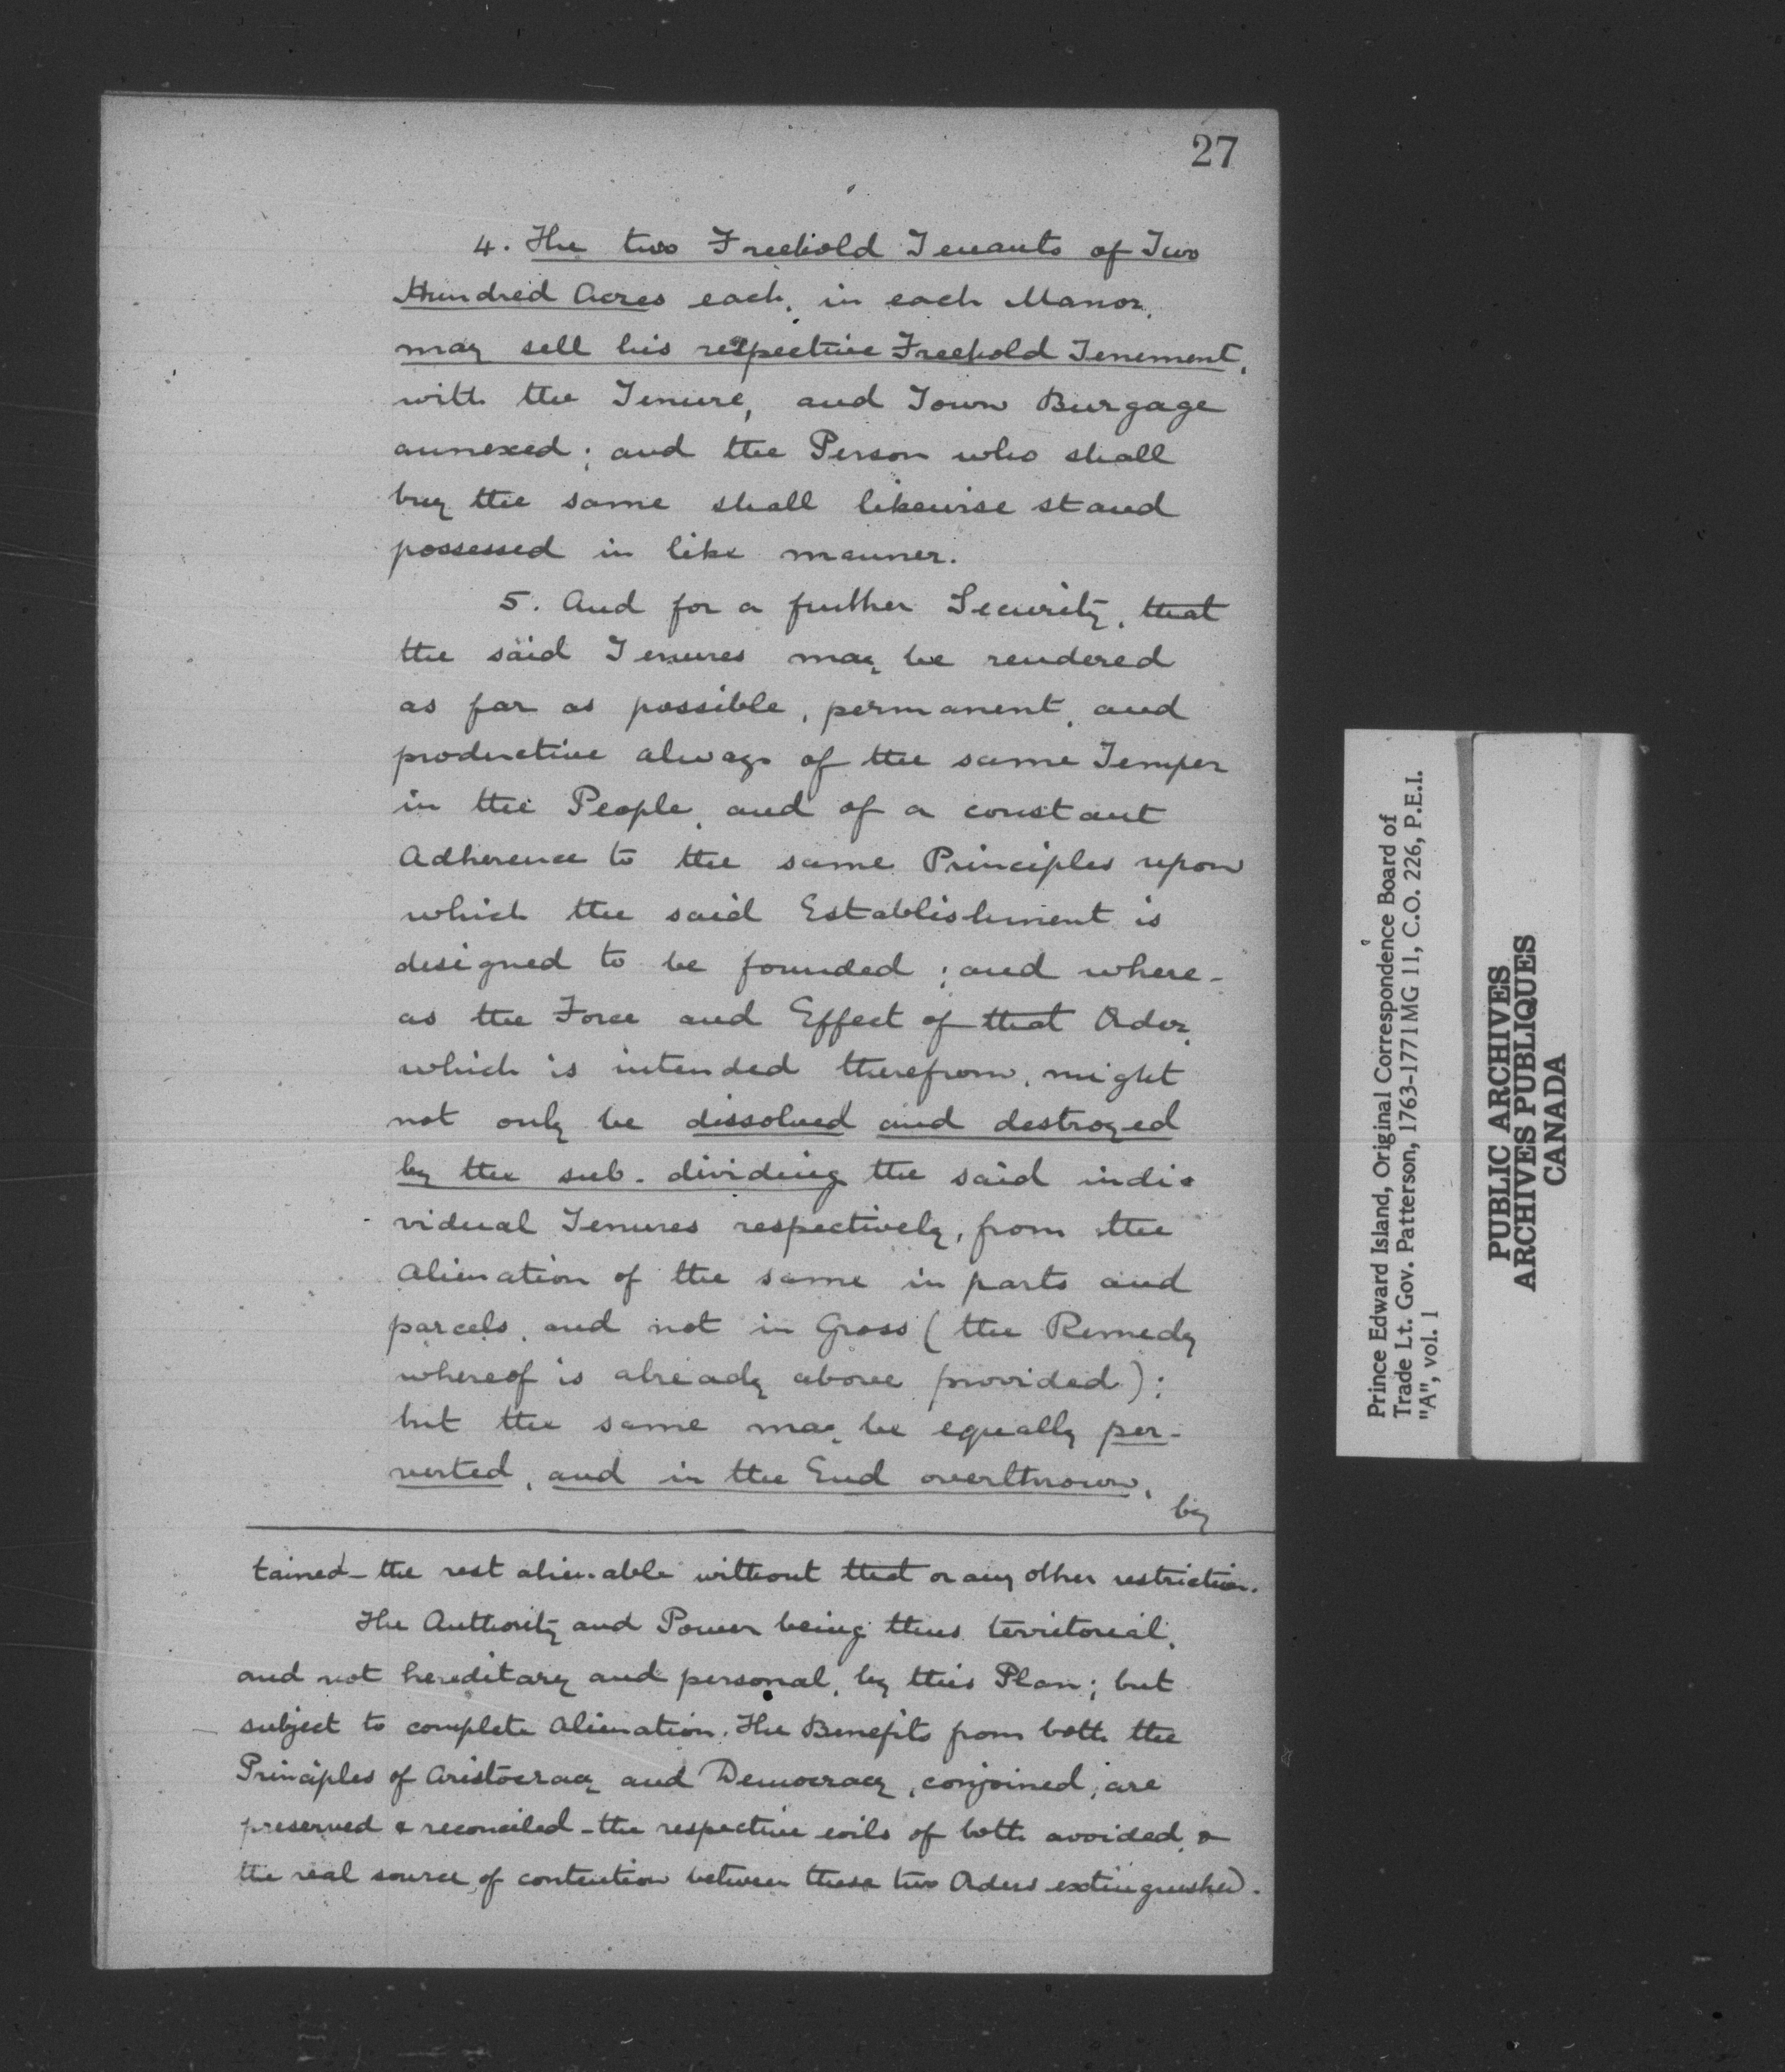 27
4. The two Freehold Tenants of Two
Hundred Acres each, in each Manor,
may sell his respective Freehold Tenement,
with the Tenure, and Town Burgage
annexed; and the Person who shall
buy the same shall likewise stand
possessed in like manner.
5. And for a further Security, that
the said Tenures may be rendered
as far as possible, permanent, and
productive always of the same Temper
in the People, and of a constant
Adherence to the same Principles upon
which the said Establishment is
designed to be founded; and where-
as the Force and Effect of that Order,
which is intended therefrom, might
not only be dissolved and destroyed
by the sub-dividing the said indi-
vidual Tenures respectively, from the
Alienation of the same in parts and
parcels, and not in Gross (the Remedy
whereof is already above provided):
but the same may be equally per-
verted, and in the End overthrown,
by
tained - the rest alienable without that or any other restriction.
The Authority and Power being thus territorial,
and not hereditary and personal, by this Plan; but
subject to complete Alienation. The Benefits from both the
Principles of Aristocracy and Democracy, conjoined, are
preserved & reconciled - the respective evils of both avoided, &
the real source of contention between these two Orders extinguished.
Prince Edward Island, Original Correspondence Board of
Trade Lt. Gov. Patterson, 1763-1771 MG 11, C.O. 226, P.E.I.
"A", vol. 1
PUBLIC ARCHIVES
ARCHIVES PUBLIQUES
CANADA